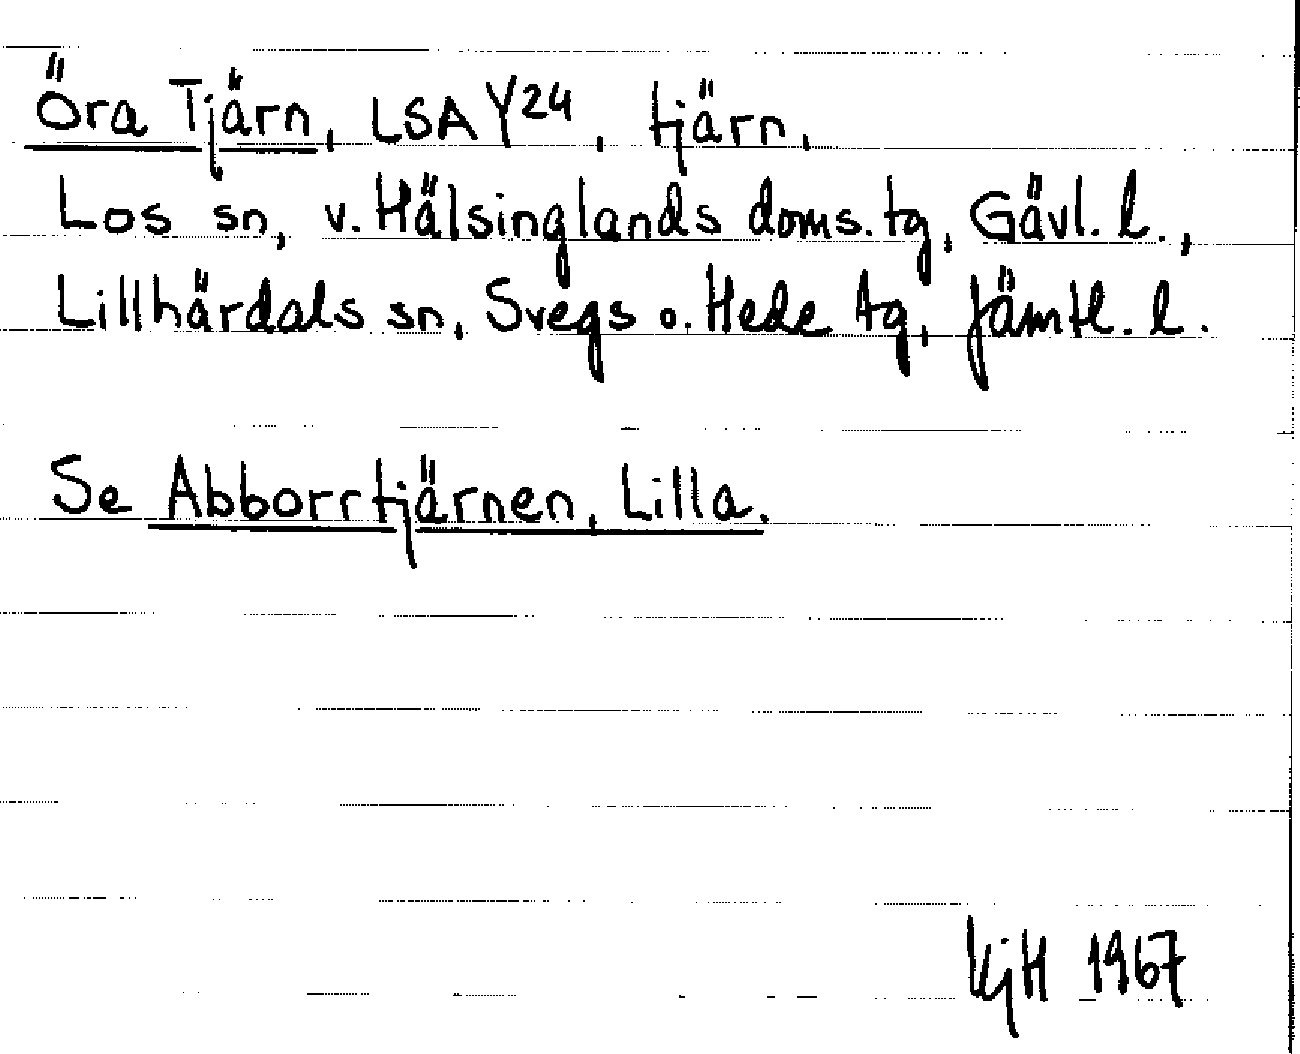 Öra Tjärn, LSA Y24, tjärn,
Los sn, v. Hälsinglands doms. tg, Gävl. l.,
Lillhärdals sn, Svegs o. Hede tg, Jämtl. l.
Se Abborrtjärnen, Lilla.
KjH 1967